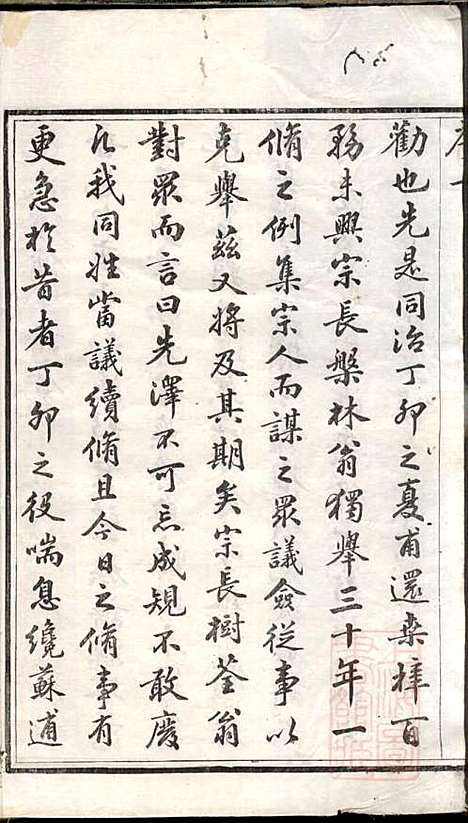 勸也先是同治丁卯之夏甫還桑梓百
務未興宗長槃林翁獨舉三十年一
脩之例集宗人而謀之眾議僉從事以
克舉茲又將及其期矣宗長樹荃翁
對眾而言曰先澤不可忘成規不敢廢
凡我同姓當議續脩且今日之脩事有
更急於昔者丁卯之役喘息纔蘇逋